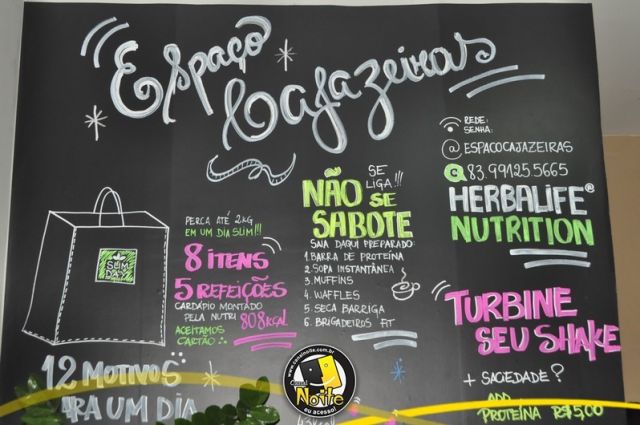 Espaço
Cajazeiras
REDE:
SENHA:
@ESPACOCAJAZEIRAS
83.99125.5665
HERBALIFE®
NUTRITION
SE
LIGA!!!
NÃO SE
SABOTE
SAIA DAQUI PREPARADO:
1. BARRA DE PROTEÍNA
2. SOPA INSTANTÂNEA
3. MUFFINS
4. WAFFLES
5. SECA BARRIGA
6. BRIGADEIROS FIT
PERCA ATÉ 2KG
EM UM DIA SLIM!!!
8 ITENS
5 REFEIÇÕES
CARDÁPIO MONTADO
PELA NUTRI 808KCAL
ACEITAMOS
CARTÃO
SLIM
DAY
12 MOTIVOS
PARA UM DIA
TURBINE
SEU SHAKE
+ SACIEDADE?
ADD
PROTEÍNA R$5,00
www.canalnoite.com.br
Canal
NOITE
eu acesso!